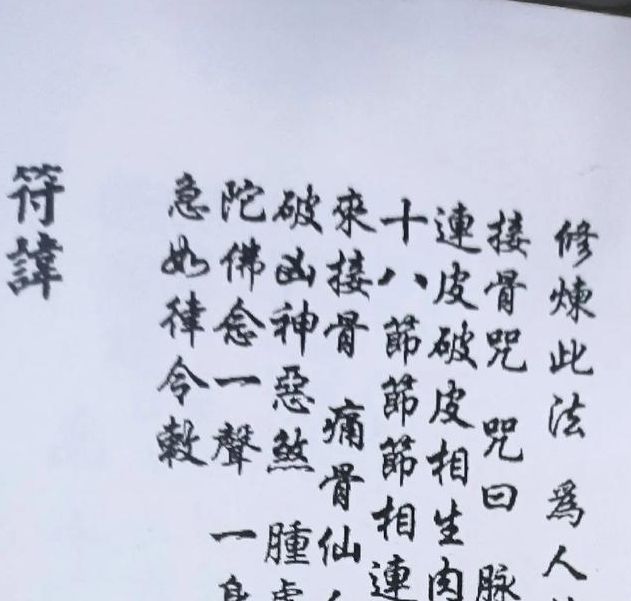 修煉此法 為人
接骨咒 咒曰 脉
連皮破皮相生肉
十八節節節相連
來接骨 痛骨仙
破凶神惡煞 腫
陀佛念一聲 一身
急如律令敕
符諱